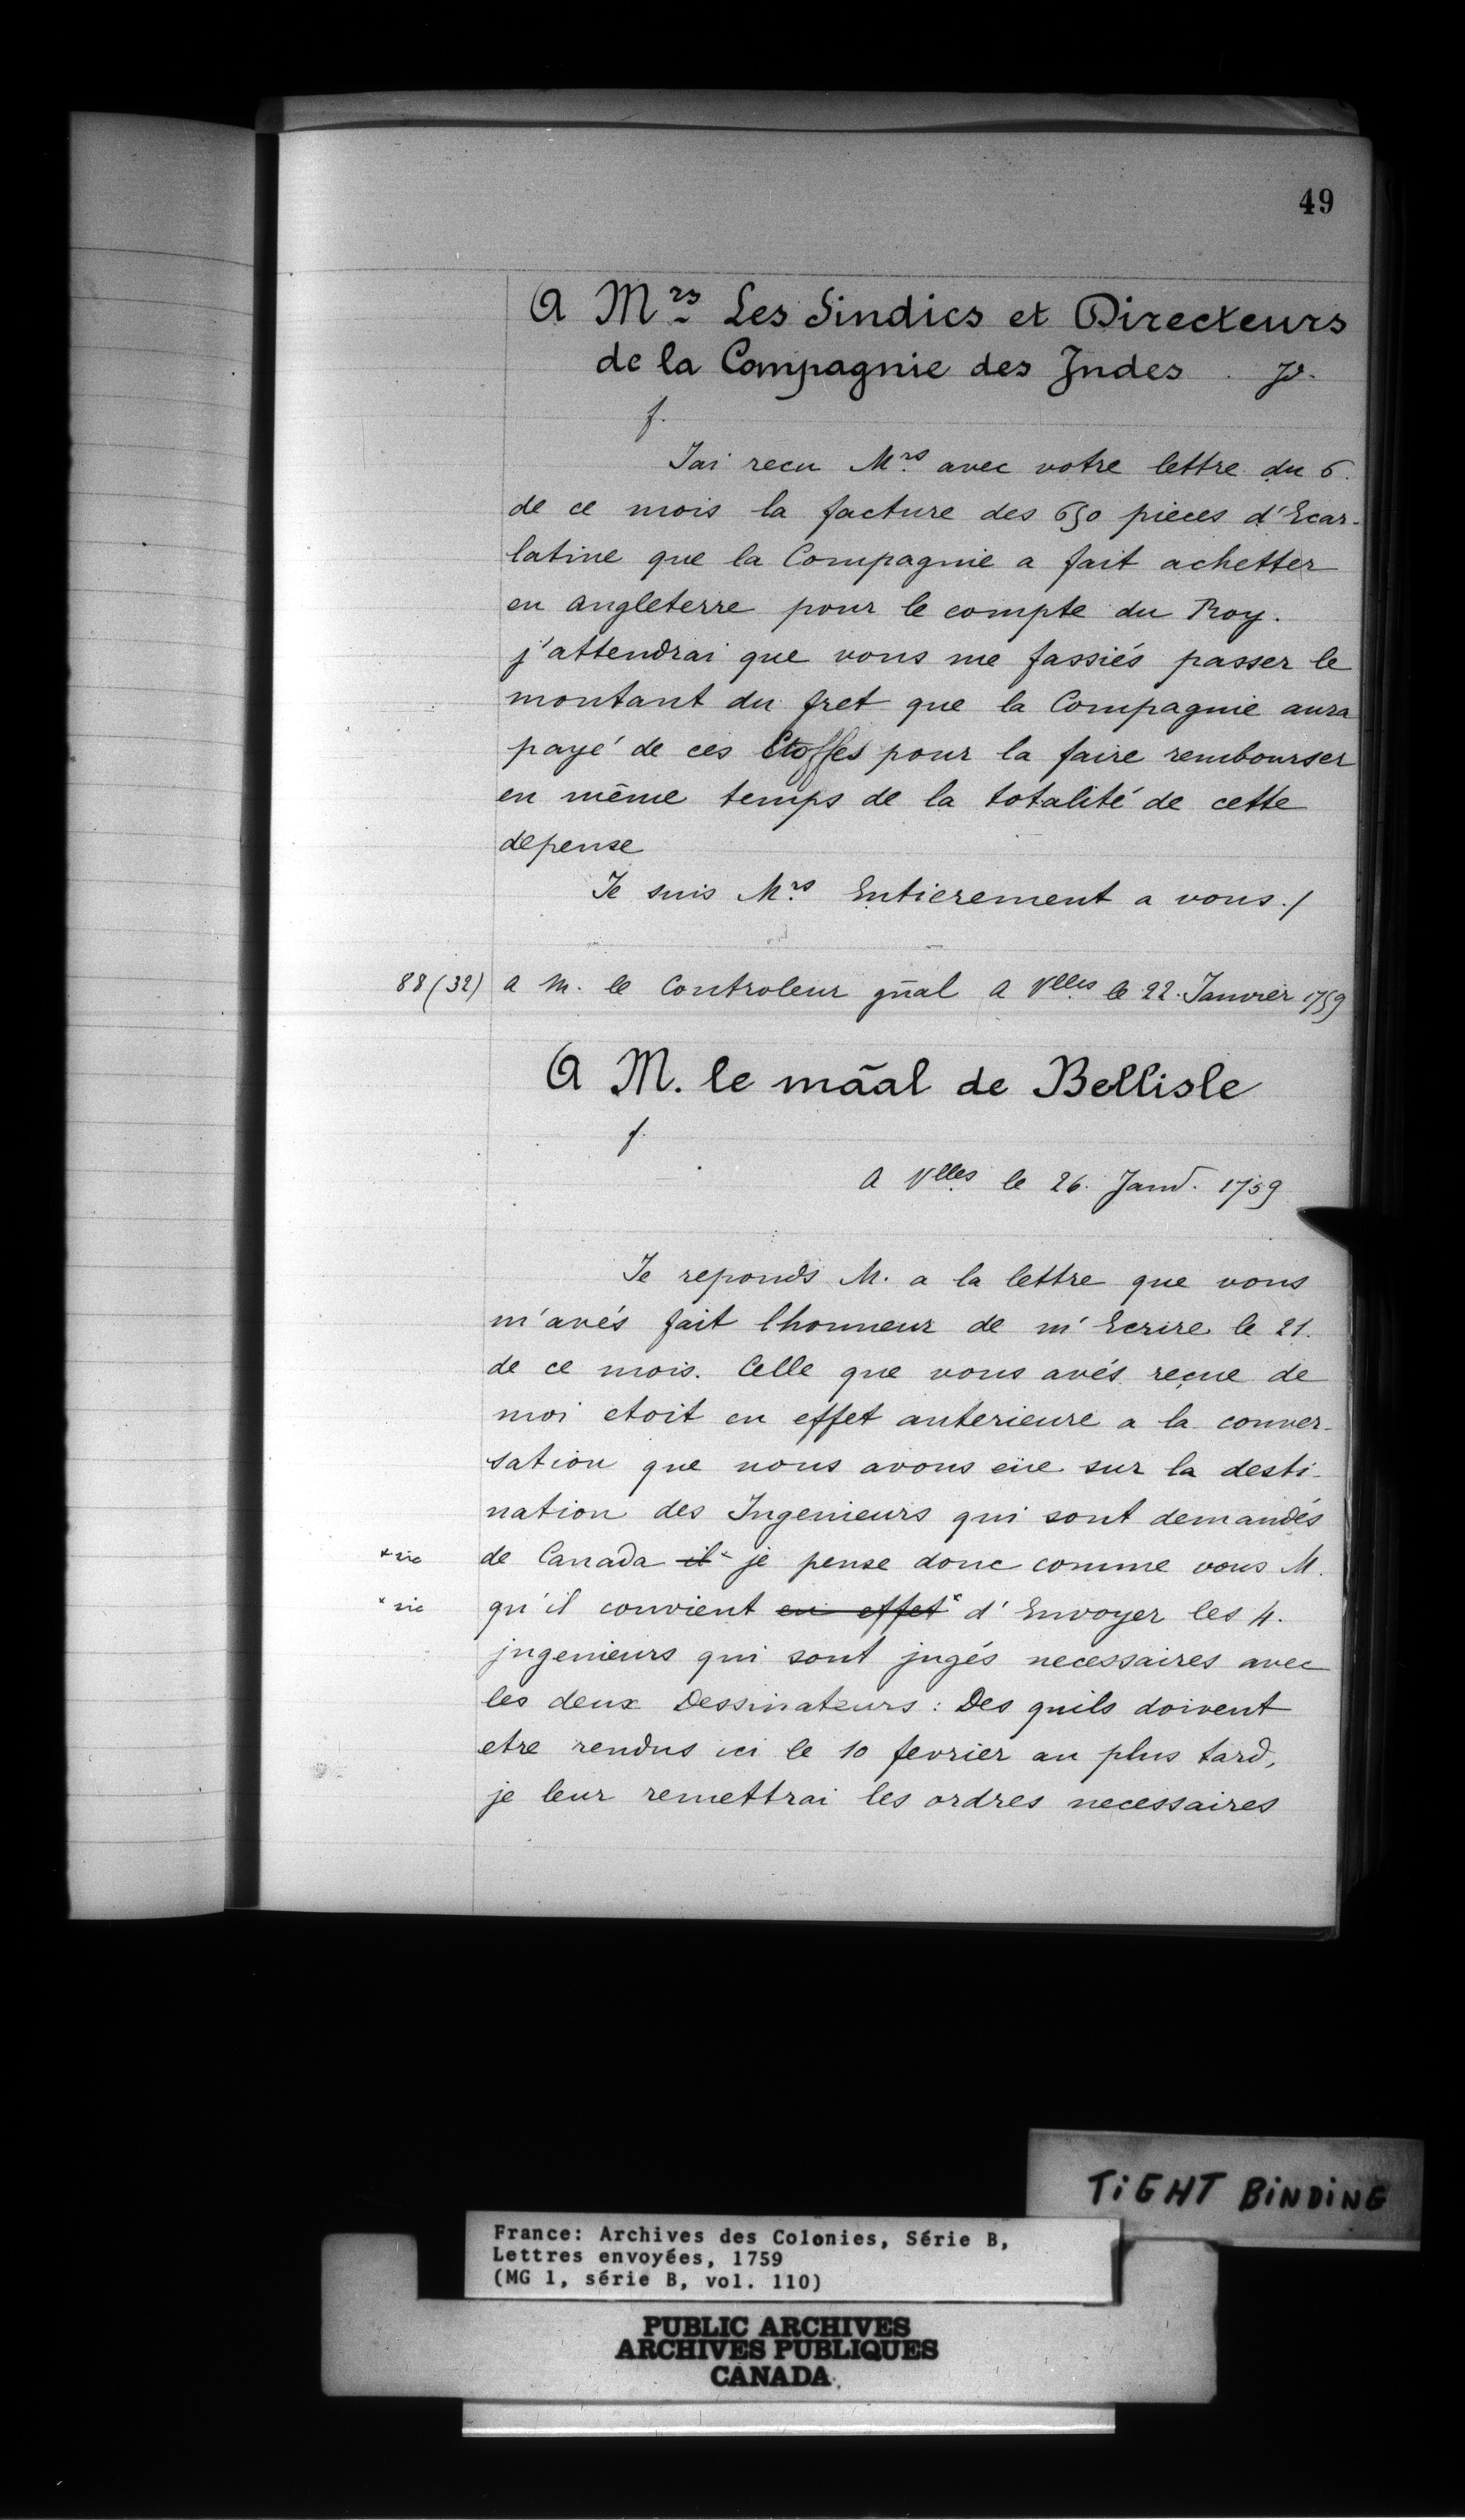 49
A Mrs Les Sindics et Directeurs
de la Compagnie des Jndes . Jd.
f.
Jai recu Mrs avec votre lettre du 6.
de ce mois la facture des 650 pieces d'Ecar-
latine que la Compagnie a fait achetter
en angleterre pour le compte du Roy.
j'attendrai que vous me fassiés passer le
montant du fret que la Compagnie aura
payé de ces Etoffes pour la faire rembourser
en même temps de la totalité de cette
depense
Je suis Mrs Entierement a vous ./
88 (32) a M. le Controleur gñal A Vlles le 22. Janvier 1759
A M. le mãal de Bellisle
f.
A Vlles le 26. Janv. 1759
Je reponds M. a la lettre que vous
m'avés fait lhonneur de m'Ecrire le 21.
de ce mois. Celle que vous avés reçue de
moi etoit en effet anterieure a la conver-
sation que nous avons eüe sur la desti-
nation des Ingenieurs qui sont demandés
* sic de Canada il * je pense donc comme vous M.
* sic qu'il convient en effet * d'Envoyer les 4.
jngenieurs qui sont jugés necessaires avec
les deux Dessinateurs : Des quils doivent
etre rendus ici le 10 fevrier au plus tard,
je leur remettrai les ordres necessaires
TiGHT BiNDiNG
France: Archives des Colonies, Série B,
Lettres envoyées, 1759
(MG 1, série B, vol. 110)
PUBLIC ARCHIVES
ARCHIVES PUBLIQUES
CANADA